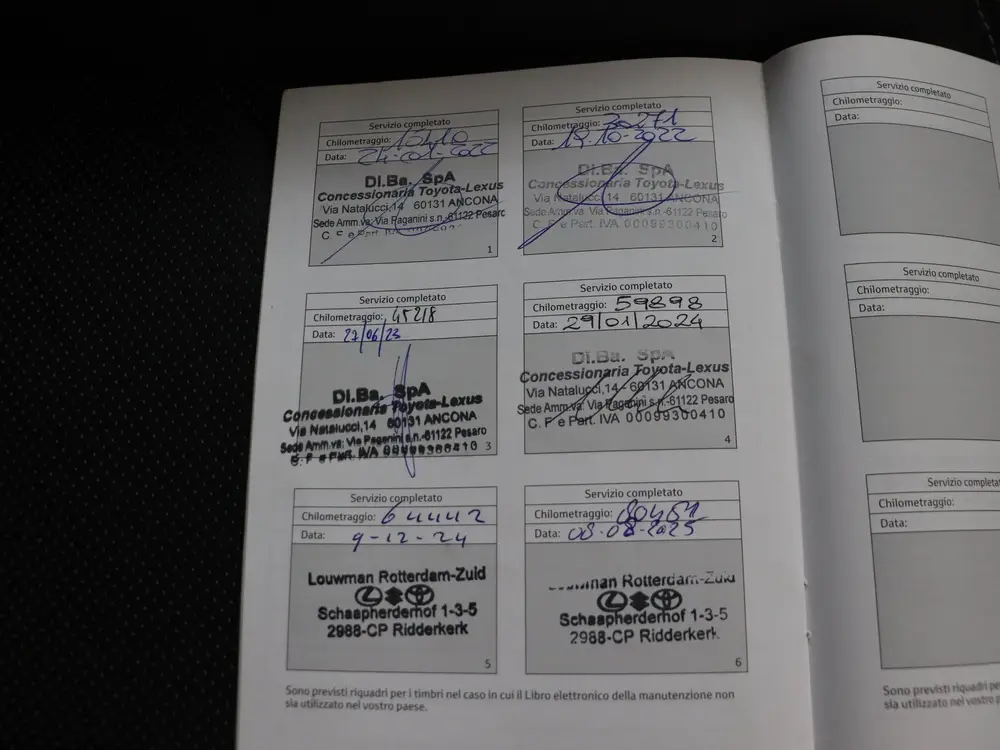 Servizio completato
Chilometraggio:
Data: 24-01-2022
DI.Ba. SpA
Concessionaria Toyota-Lexus
Via Natalucci,14 60131 ANCONA
Sede Amm.va: Via Paganini s.n.-61122 Pesaro
C. F. e Part. IVA
1
Servizio completato
Chilometraggio: 30271
Data: 19-10-2022
DI.Ba. SpA
Concessionaria Toyota-Lexus
Via Natalucci,14 60131 ANCONA
Sede Amm.va Via Paganini s.n.-61122 Pesaro
C. F. e Part. IVA 00099300410
2
Servizio completato
Chilometraggio: 45218
Data: 27/06/23
DI.Ba. SpA
Concessionaria Toyota-Lexus
Via Natalucci,14 60131 ANCONA
Sede Amm.va: Via Paganini s.n.-61122 Pesaro
C. F. e Part. IVA 00099300410
3
Servizio completato
Chilometraggio: 59898
Data: 29/01/2024
DI.Ba. SpA
Concessionaria Toyota-Lexus
Via Natalucci,14 - 60131 ANCONA
Sede Amm.va: Via Paganini s.n.-61122 Pesaro
C. F. e Part. IVA 00099300410
4
Servizio completato
Chilometraggio: 64442
Data: 9-12-24
Louwman Rotterdam-Zuid
Schaapherderhof 1-3-5
2988-CP Ridderkerk
5
Servizio completato
Chilometraggio:
Data: 08-08-2025
Rotterdam-Zuid
Schaapherderhof 1-3-5
2988-CP Ridderkerk
6
Sono previsti riquadri per i timbri nel caso in cui il Libro elettronico della manutenzione non
sia utilizzato nel vostro paese.
Servizio completato
Chilometraggio:
Data:
Servizio completato
Chilometraggio:
Data:
Servizio completat
Chilometraggio:
Data:
Sono previsti riquadri pe
sia utilizzato nel vostro p